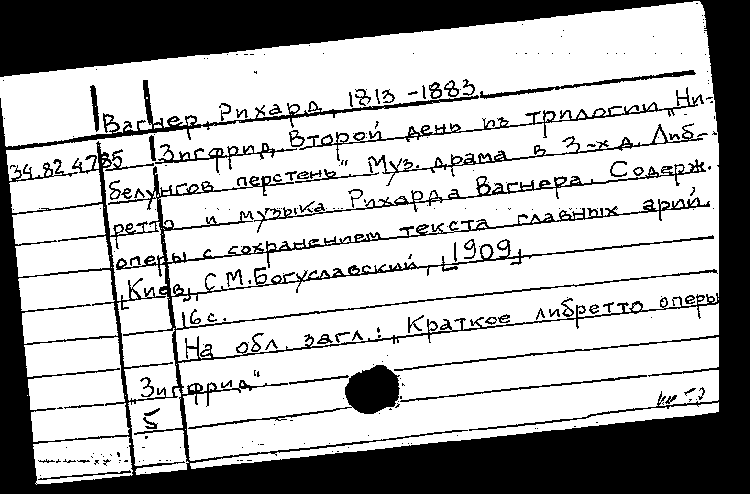 Вагнер, Рихард, 1813-1883.
34.82.4785 Зигфрид. Второй день из трилогии „Ни-
белунгов перстень". Муз. драма в 3-х д. Либ-
ретто и музыка Рихарда Вагнера. Содерж.
оперы с сохранением текста главных арий.
[Киев], С.М.Богуславский, [1909].
16 с.
На обл. загл.: „Краткое либретто оперы
„Зигфрид".
5